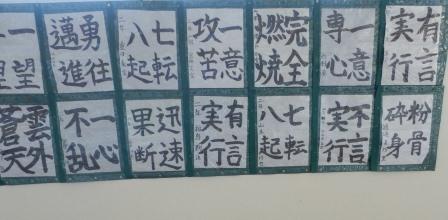 有言
実行
一意
専心
完全
燃焼
一意
攻苦
七転
八起
勇往
邁進
一望
粉骨
砕身
不言
実行
七転
八起
有言
実行
迅速
果断
一心
不乱
雲外
蒼天